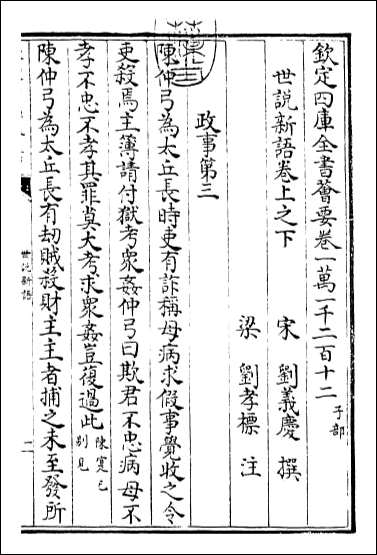 欽定四庫全書薈要卷一萬一千二百十二 子部
世說新語卷上之下 宋 劉義慶 撰
梁 劉孝標 注
政事第三
陳仲弓為太丘長時吏有詐稱母病求假事覺收之令
吏殺焉主簿請付獄考衆姦仲弓曰欺君不忠病母不
孝不忠不孝其罪莫大考求衆姦豈復過此 陳寔已
别見
陳仲弓為太丘長有劫賊殺財主主者捕之未至發所
世說新語